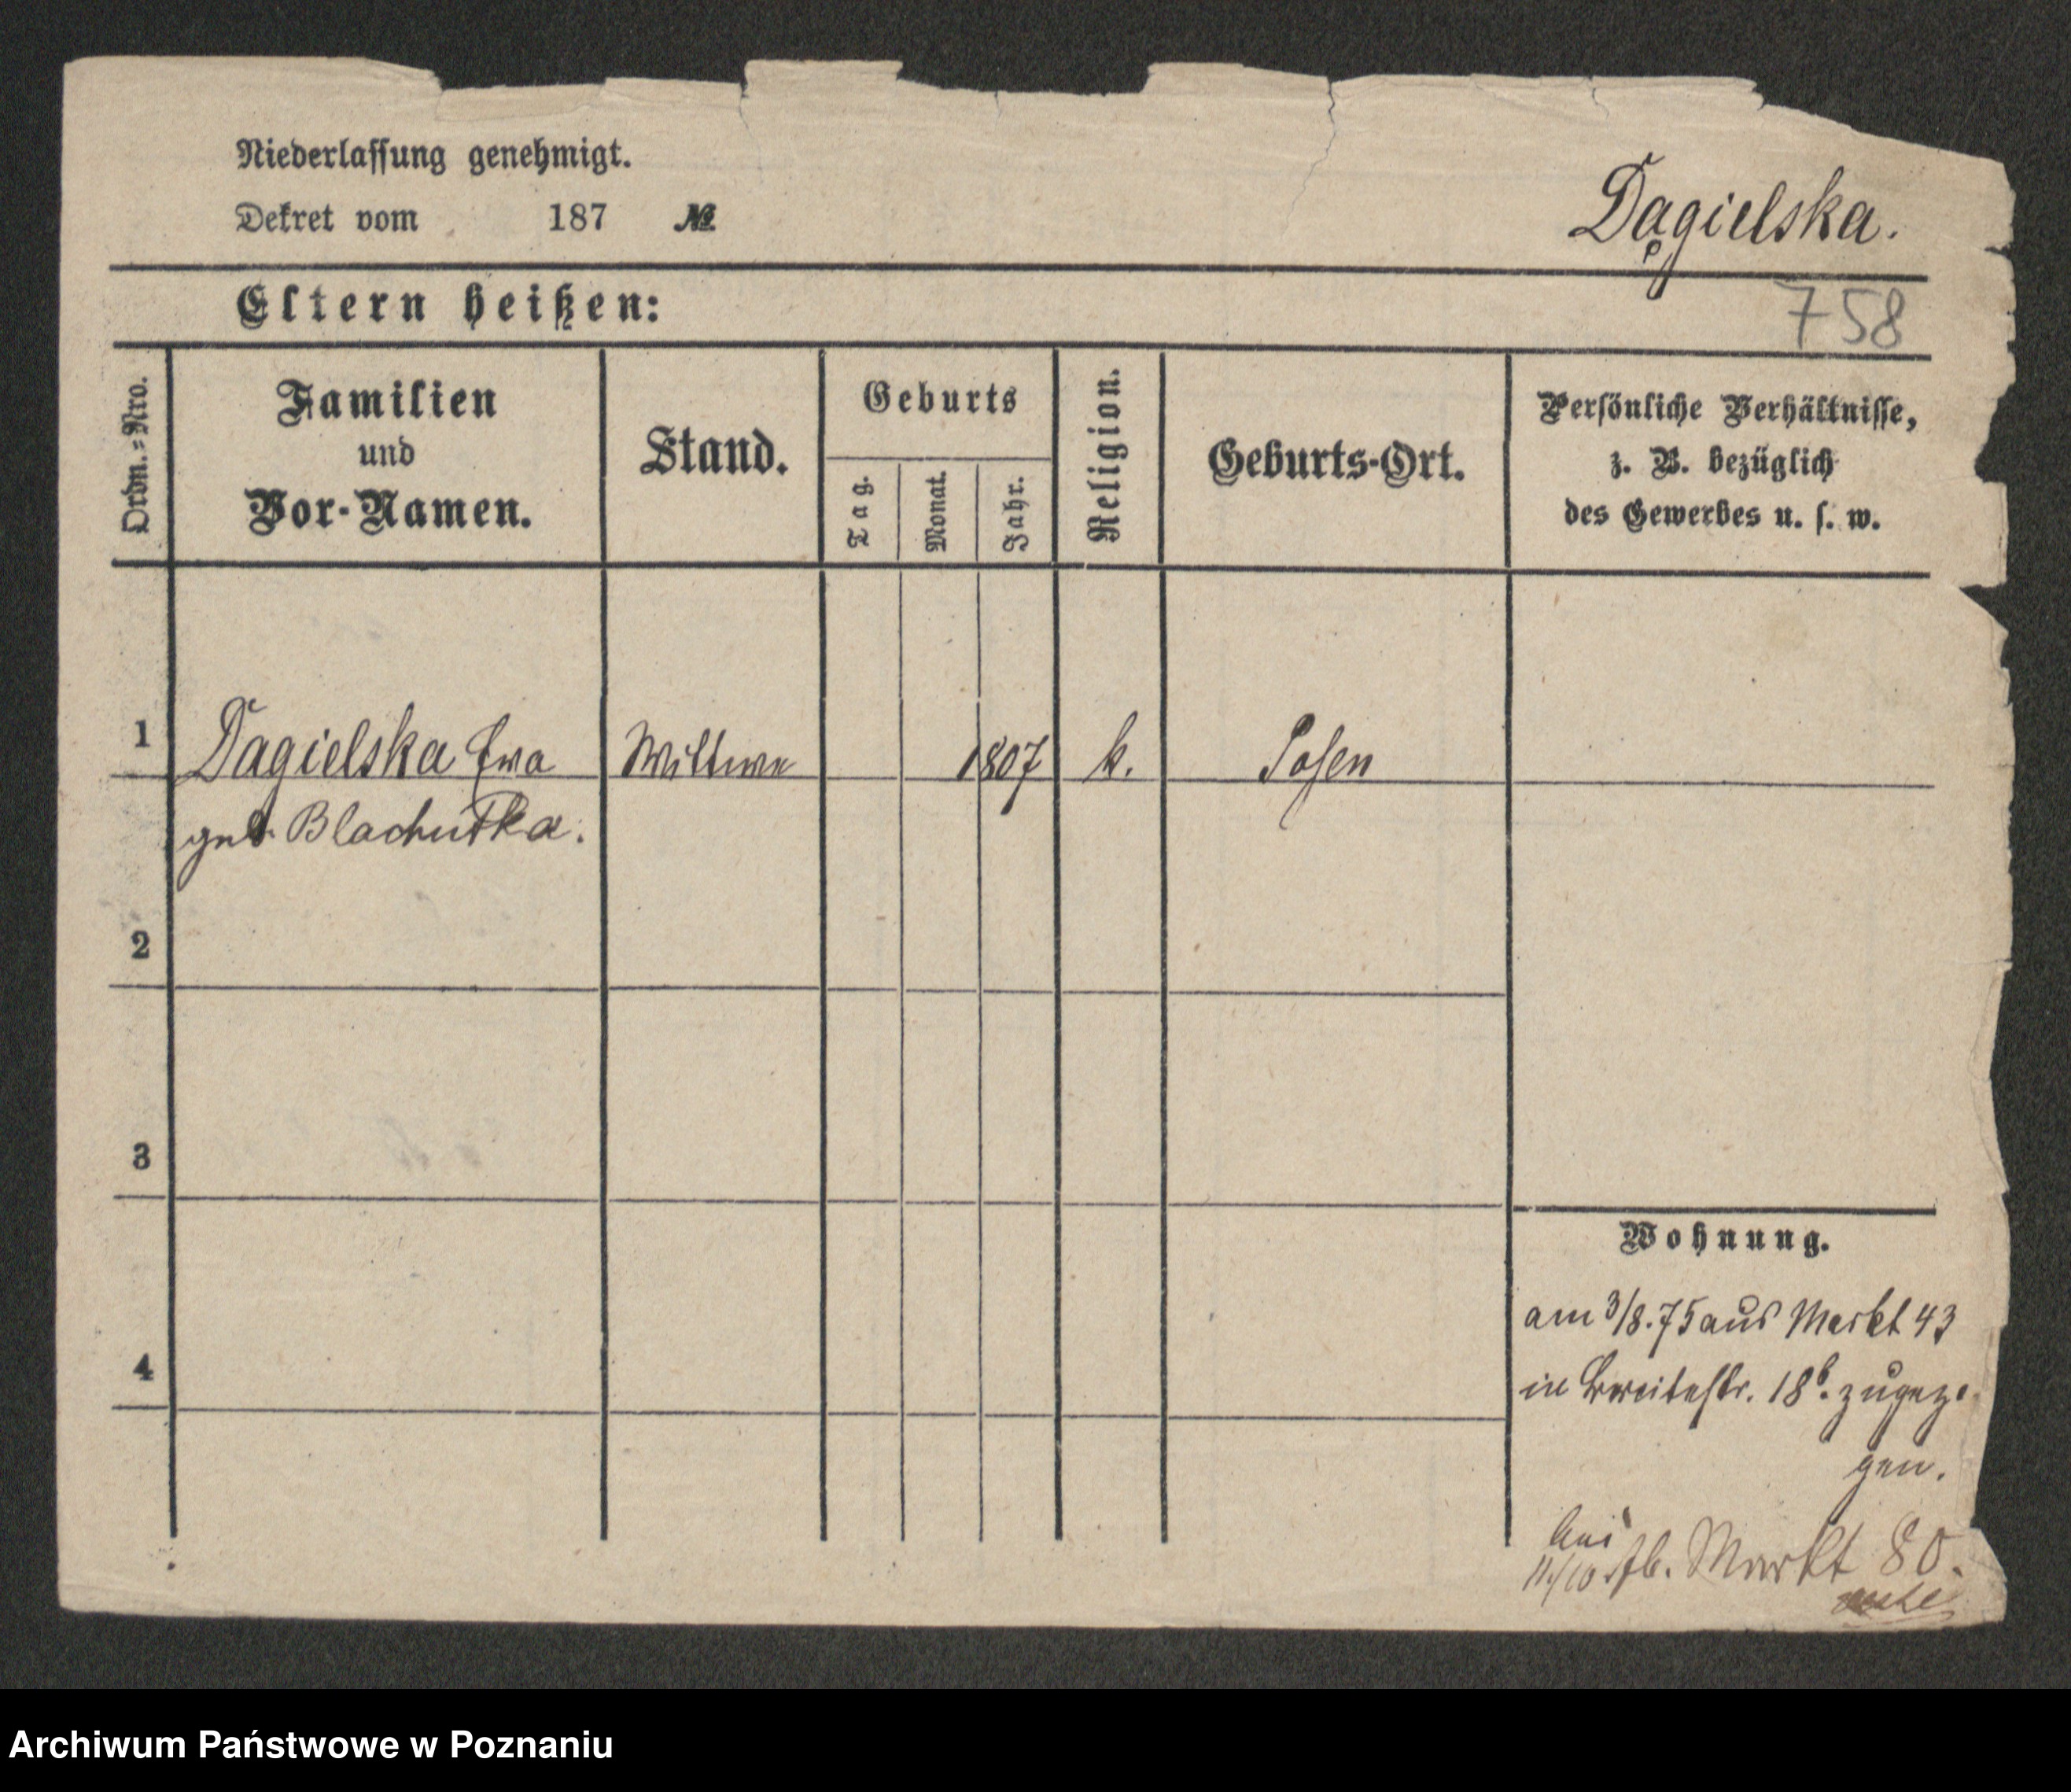 Niederlassung genehmigt.
Dekret vom 187 №
Dągielska.
758
Eltern heißen:
Ordn.=Nro.
Familien
und
Vor-Namen.
Stand.
Geburts
Tag.
Monat.
Jahr.
Religion.
Geburts-Ort.
Persönliche Verhältnisse,
z. B. bezüglich
des Gewerbes u. s. w.
1 Dagielska Ewa Wittwe 1807 k. Posen
geb. Blachutka.
2
3
4
Wohnung.
am 3/8.75 aus Markt 43
in Breitestr. 18b. zugezo
gen.
11/10 Markt 80.
Archiwum Państwowe w Poznaniu